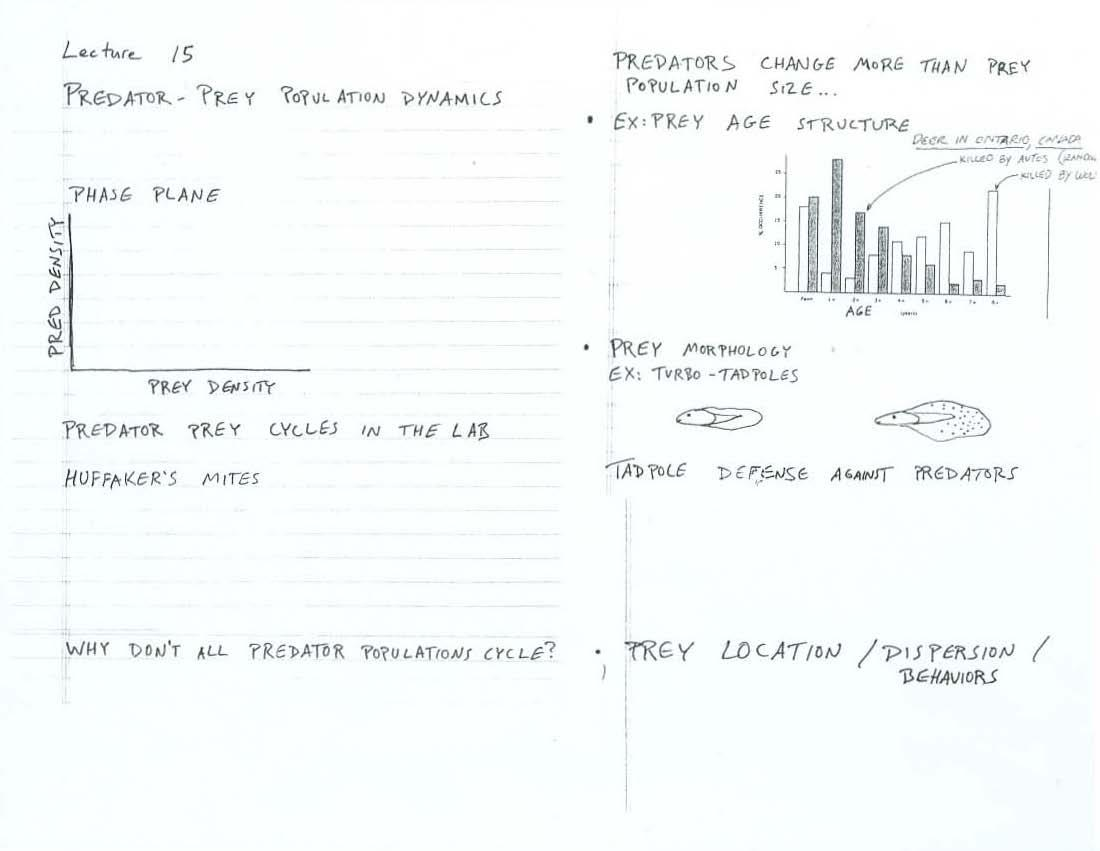 Lecture 15
PREDATOR - PREY POPULATION DYNAMICS
PHASE PLANE
PRED DENSITY
PREY DENSITY
PREDATOR PREY CYCLES IN THE LAB
HUFFAKER'S MITES
WHY DON'T ALL PREDATOR POPULATIONS CYCLE?
PREDATORS CHANGE MORE THAN PREY
POPULATION SIZE...
• EX: PREY AGE STRUCTURE
DEER IN ONTARIO, CANADA
KILLED BY AUTOS
KILLED BY
% OCCURRENCE
AGE
• PREY MORPHOLOGY
EX: TURBO-TADPOLES
TADPOLE DEFENSE AGAINST PREDATORS
• PREY LOCATION / DISPERSION /
BEHAVIORS